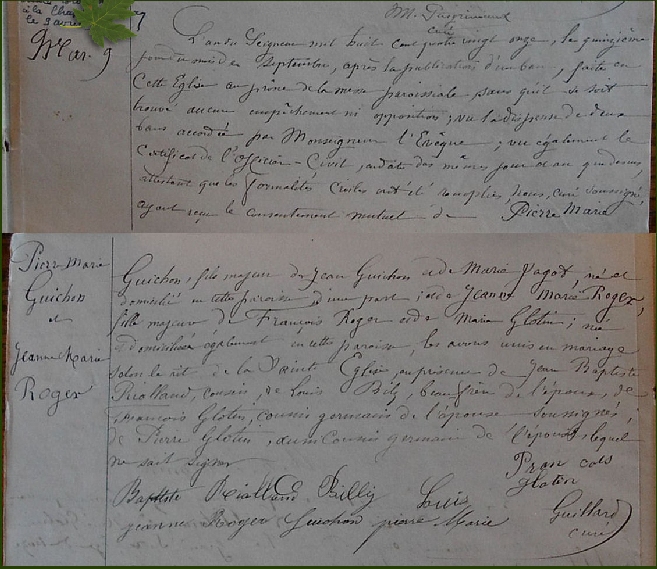 à la
le 9 avril
Mar. 9
L'an du Seigneur mil huit cent quatre vingt onze, le quinzième
jour du mois de Septembre, après la publication d'un ban, faite en
Cette Église au prône de la messe paroissiale sans qu'il se soit
trouvé aucun empêchement ni opposition; vu la dispense de deux
bans accordée par Monseigneur l'Evêque; vu également le
Certificat de l'Officier-Civil, en date des mêmes jour et an que dessus,
attestant que les formalités Civiles ont été remplies, Nous, curé soussigné,
ayant reçu le consentement mutuel de Pierre Marie
Pierre Marie
Guichon
et
Jeanne Marie
Roger
Guichon, fils majeur de Jean Guichon et de Marie Jagot, né et
domicilié en cette paroisse d'une part; et de Jeanne Marie Roger,
fille majeure de François Roger et de Marie Glotin; née
et domiciliée également en cette paroisse, les avons unis en mariage
selon le rit de la Sainte Eglise, en présence de Jean Baptiste
Rialland, cousin, de Louis Bily, beau frère de l'époux, de
François Glotin, cousin germain de l'épouse soussignés,
de Pierre Glotin, aussi cousin germain de l'épouse, lequel
ne sait signer
Baptiste Rialland Billy Louis
Glotin
jeanne Roger Guichon pierre Marie
Guillard
curé